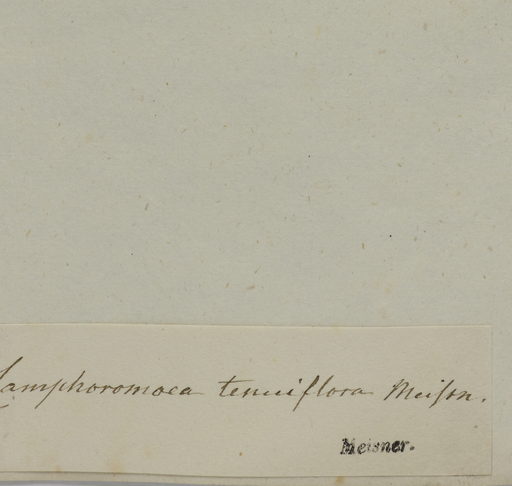 Camphoromoea tenuiflora Meissn.
Meisner.